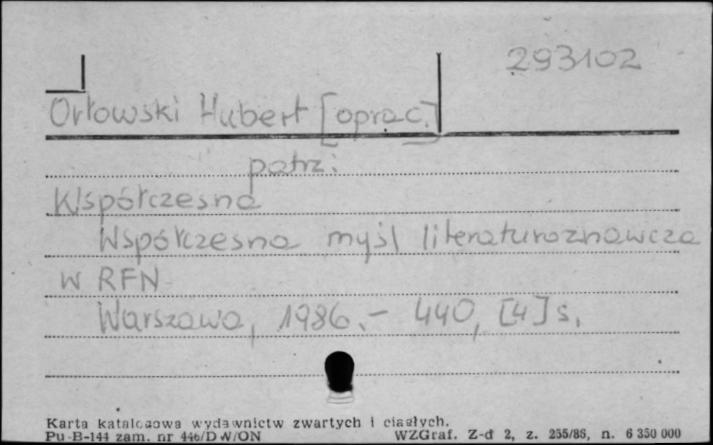 293102
Orłowski Hubert [oprac.]
patrz:
Współczesna
Współczesna myśl literaturoznawcza
w RFN
Warszawa, 1986.- 440, [4] s.
Karta katalogowa wydawnictw zwartych i ciągłych.
Pu-B-144 zam. nr 446/DW/ON WZGraf. Z-d 2, z. 255/86, n. 6 350 000